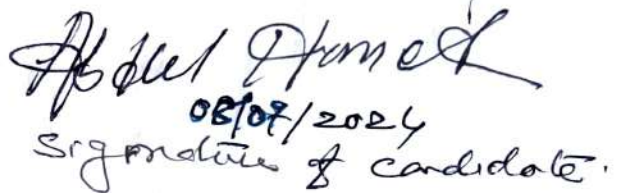 Abdul Hameed
08/07/2024
Signature of candidate.